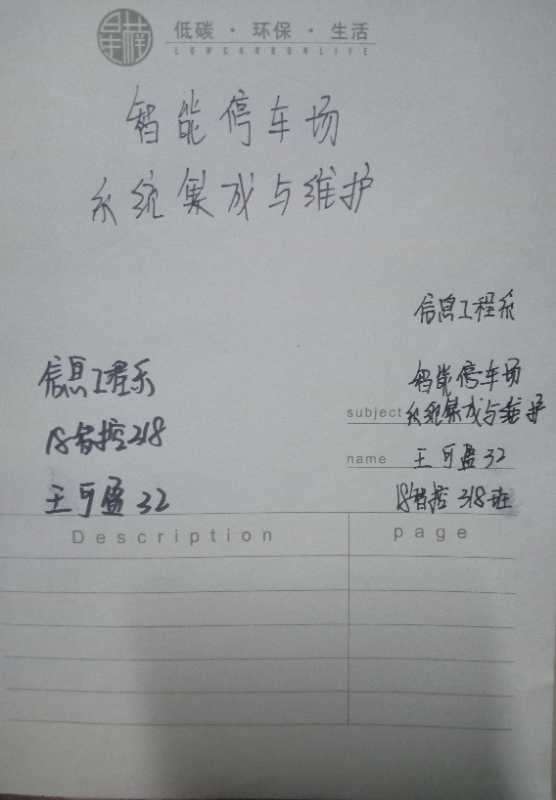 低碳·环保·生活
LOWCARBONLIFE
智能停车场
系统集成与维护
信息工程系
智能停车场
subject 系统集成与维护
name 王可盈 32
18智控 318班
信息工程系
18智控 318
王可盈 32
Description page